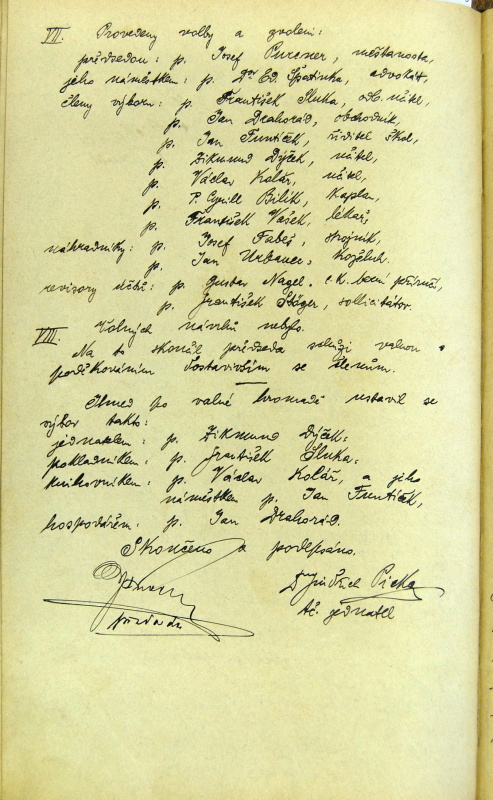 VII. Provedeny volby a zvoleni:
předsedou: p. Josef Purcner, měšťanosta,
jeho náměstkem: p. Dr Ed. Špatinka, advokát,
členy výboru: p. František Sluka, odb. učitel,
p. Jan Drahorád, obchodník,
p. Jan Funtíček, řiditel škol,
p. Zikmund Dýček, učitel,
p. Václav Kolář, učitel,
P. Cyrill Bílík, kaplan,
p. František Vašek, lékař,
náhradníky: p. Josef Fabeš, strojník,
p. Jan Urbanec, koželuh.
revisory účtů: p. Gustav Nagel, c. k. berní
p. František Stöger, sollicitátor.
VIII. Volných návrhů nebylo.
Na to skončil předseda schůzi valnou s
poděkováním dostavivším se členům.
Ihned po valné hromadě ustavil se
výbor takto:
jednatelem: p. Zikmund Dýček:
pokladníkem: p. František Sluka:
knihovníkem: p. Václav Kolář, a jeho
náměstkem p. Jan Funtíček,
hospodářem: p. Jan Drahorád.
Skončeno a podepsáno.
Dr Jindřich Picka
předseda
tč. jednatel